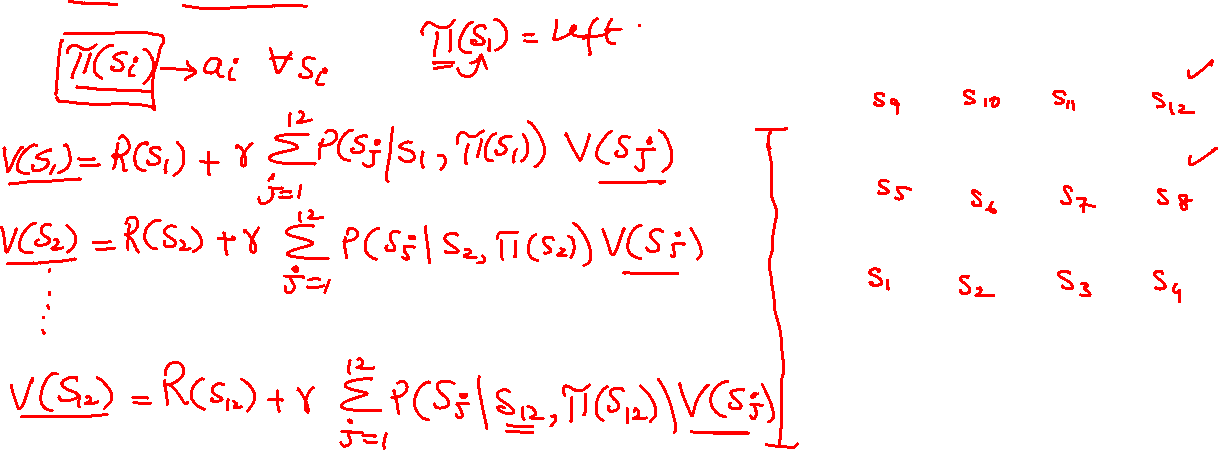 π(Sᵢ) → aᵢ ∀ Sᵢ
π(S₁) = Left
V(S₁) = R(S₁) + γ ∑_{j=1}^{12} P(Sⱼ | S₁, π(S₁)) V(Sⱼ)
V(S₂) = R(S₂) + γ ∑_{j=1}^{12} P(Sⱼ | S₂, π(S₂)) V(Sⱼ)
⋮
V(S₁₂) = R(S₁₂) + γ ∑_{j=1}^{12} P(Sⱼ | S₁₂, π(S₁₂)) V(Sⱼ)
S₉ S₁₀ S₁₁ S₁₂ ✓
S₅ S₆ S₇ S₈ ✓
S₁ S₂ S₃ S₄